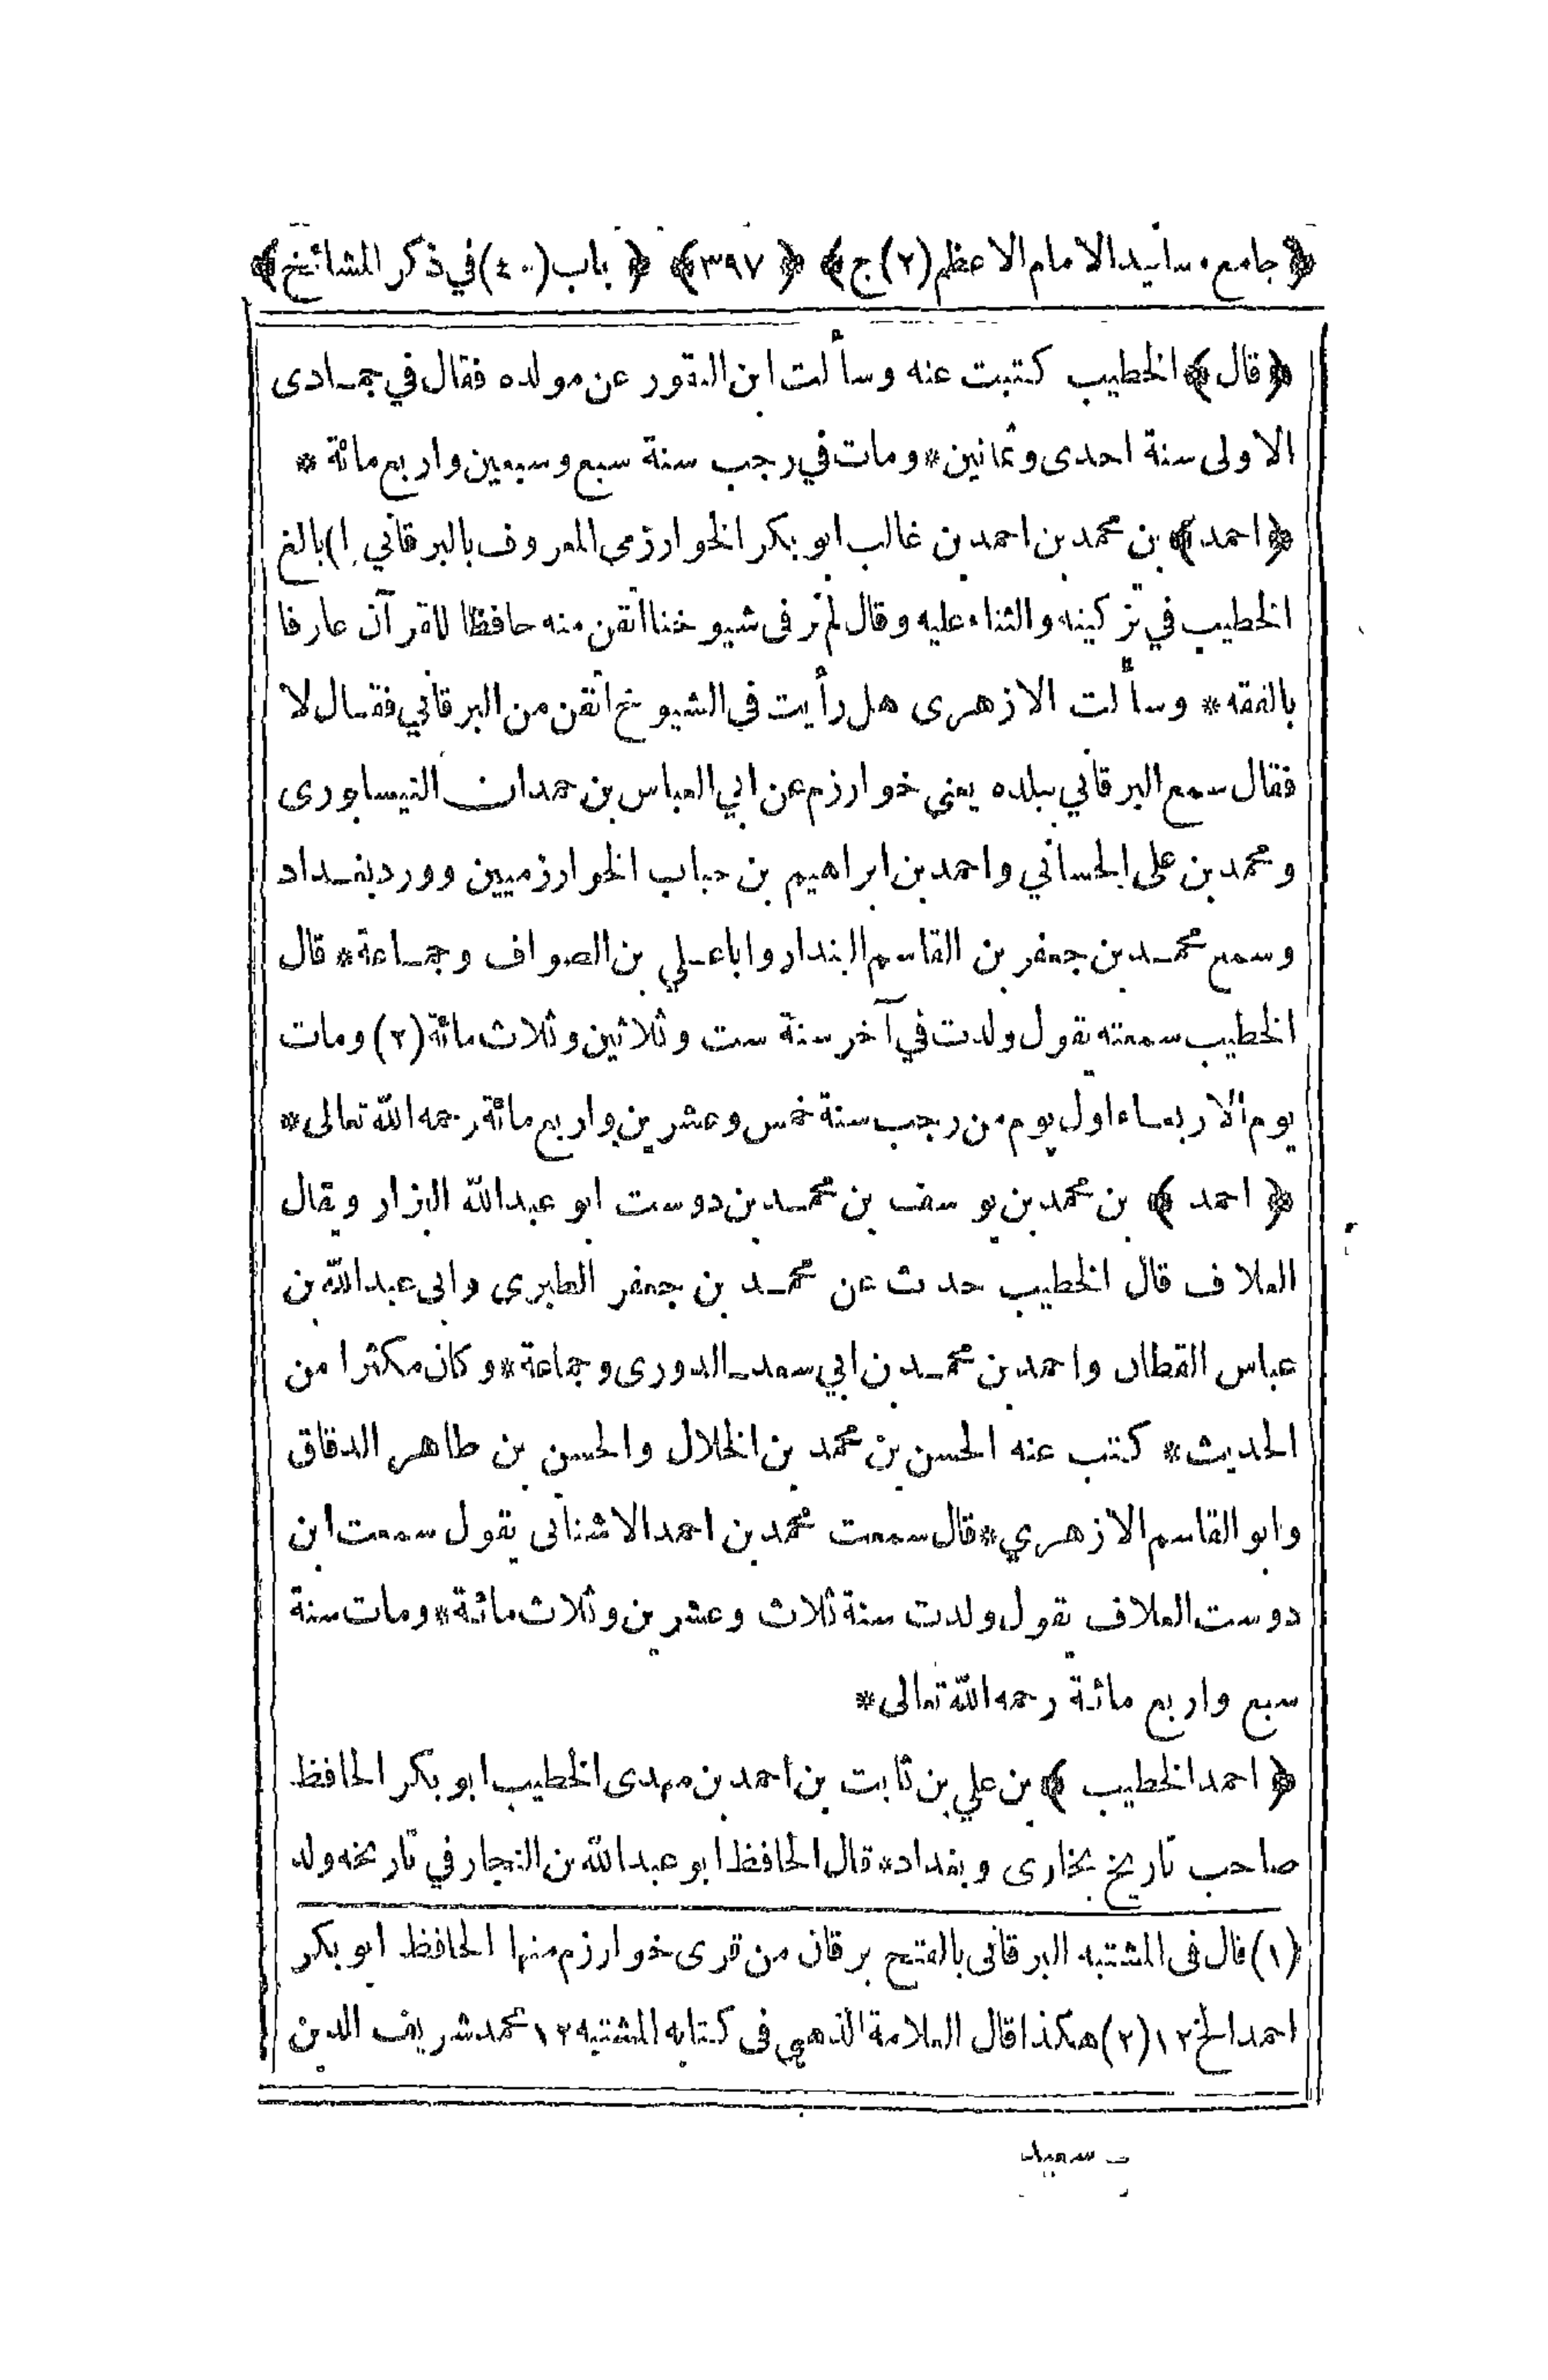 ﴿جامع مسانيد الامام الاعظم (٢) ج﴾ ﴿٣٩٧﴾ ﴿ باب (٤٠) في ذكر المشائخ﴾
﴿قال﴾ الخطيب كتبت عنه وسألت ابن النقور عن مولده فقال في جمادى
الاولى سنة احدى وثمانين* ومات في رجب سنة سبع وسبعين واربع مائة *
﴿احمد﴾ بن محمد بن احمد بن غالب ابو بكر الخوارزمى المعروف بالبرقاني (١) بالغ
الخطيب في تزكيته والثناء عليه وقال لم نر فى شيوخنا اتقن منه حافظا للقرآن عارفا
بالفقه* وسألت الازهرى هل رأيت في الشيوخ اتقن من البرقاني فقال لا
فقال سمع البرقاني ببلده يعنى خوارزم عن ابي العباس بن حمدان النيسابورى
ومحمد بن على الحساني واحمد بن ابراهيم بن حباب الخوارزميين وورد بغداد
وسمع محمد بن جعفر بن القاسم البندار وابا علي بن الصواف وجماعة* قال
الخطيب سمعته يقول ولدت في آخر سنة ست وثلاثين وثلاث مائة (٢) ومات
يوم الاربعاء اول يوم من رجب سنة خمس وعشرين واربع مائة رحمه الله تعالى*
﴿ احمد ﴾ بن محمد بن يوسف بن محمد بن دوست ابو عبد الله البزار ويقال
العلاف قال الخطيب حدث عن محمد بن جعفر الطبرى وابى عبد الله بن
عباس القطان واحمد بن محمد بن ابي سعد الدورى وجماعة* وكان مكثرا من
الحديث* كتب عنه الحسن بن محمد بن الخلال والحسن بن طاهر الدقاق
وابو القاسم الازهري* قال سمعت محمد بن احمد الاشنانى يقول سمعت ابن
دوست العلاف يقول ولدت سنة ثلاث وعشرين وثلاث مائة* ومات سنة
سبع واربع مائة رحمه الله تعالى*
﴿ احمد الخطيب ﴾ بن علي بن ثابت بن احمد بن مهدى الخطيب ابو بكر الحافظ
صاحب تاريخ بخارى وبغداد* قال الحافظ ابو عبد الله بن النجار في تاريخه ولد
(١) قال فى المشتبه البرقانى بالفتح برقان من قرى خوارزم منها الحافظ ابو بكر
احمد الخ ١٢ (٢) هكذا قال العلامة الذهبي فى كتابه المشتبه ١٢ محمد شريف الدين